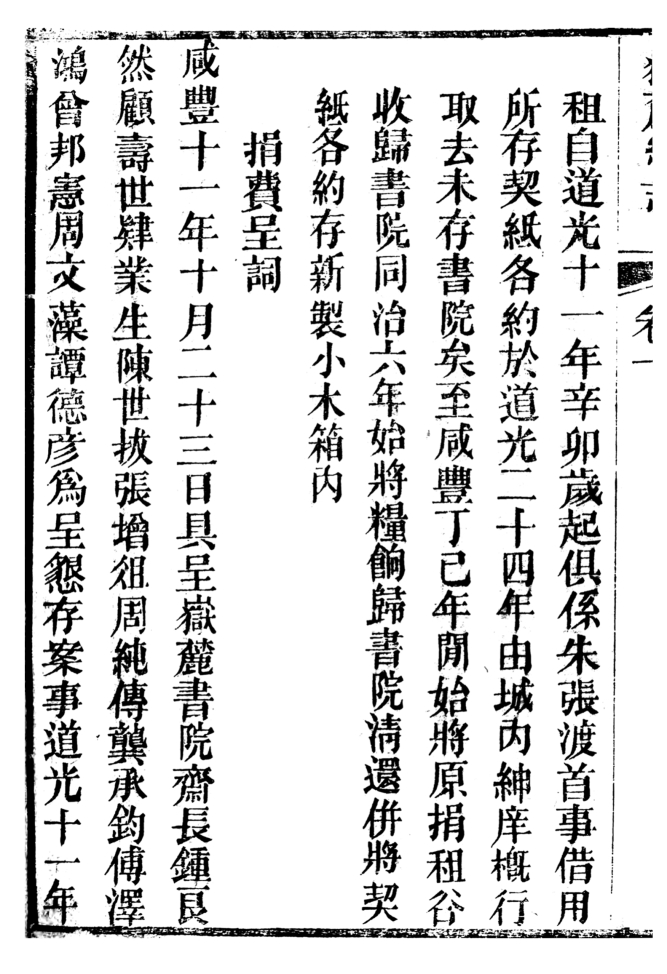 卷一
租自道光十一年辛卯歲起俱係朱張渡首事借用
所存契紙各約於道光二十四年由城内紳庠槪行
取去未存書院矣至咸豐丁己年閒始將原捐租谷
收歸書院同治六年始將糧餉歸書院淸還併將契
紙各約存新製小木箱内
捐費呈詞
咸豐十一年十月二十三日具呈嶽麓書院齋長鍾良
然顧壽世肄業生陳世拔張增徂周純傳龔承鈞傅澤
鴻曾邦憲周文藻譚德彦爲呈懇存案事道光十一年